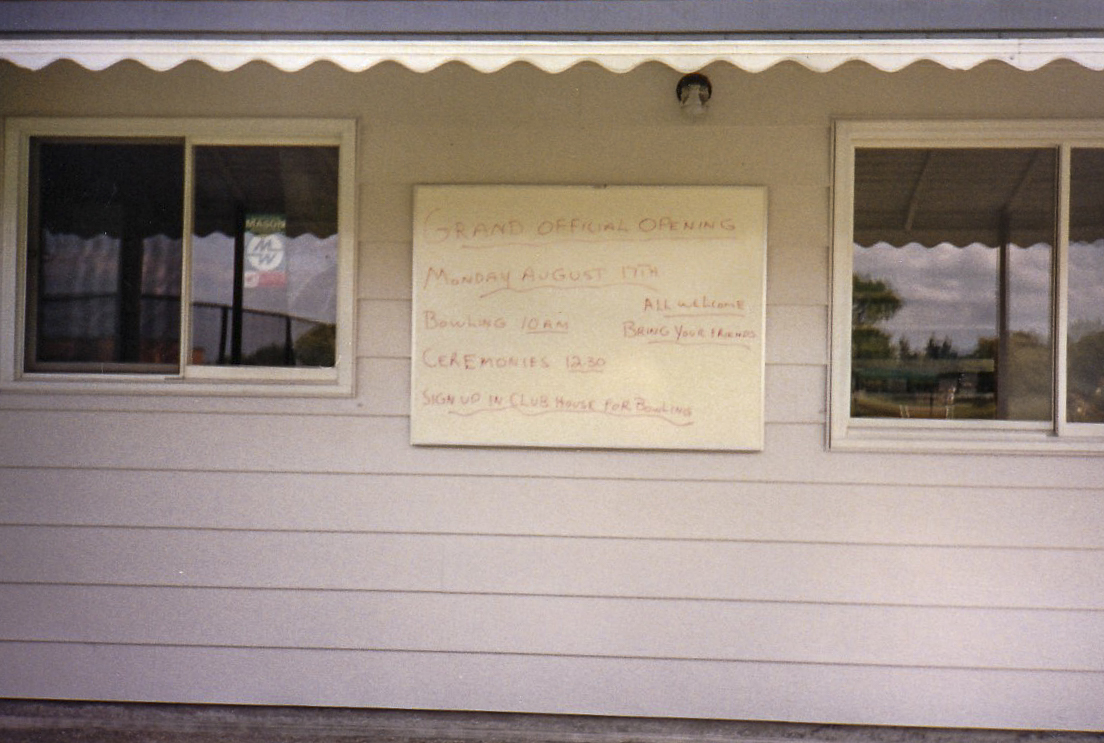 GRAND OFFICIAL OPENING
MONDAY AUGUST 17TH
ALL WELCOME
BRING YOUR FRIENDS
BOWLING 10 AM
CEREMONIES 12.30
SIGN UP IN CLUB HOUSE FOR BOWLING
MASON